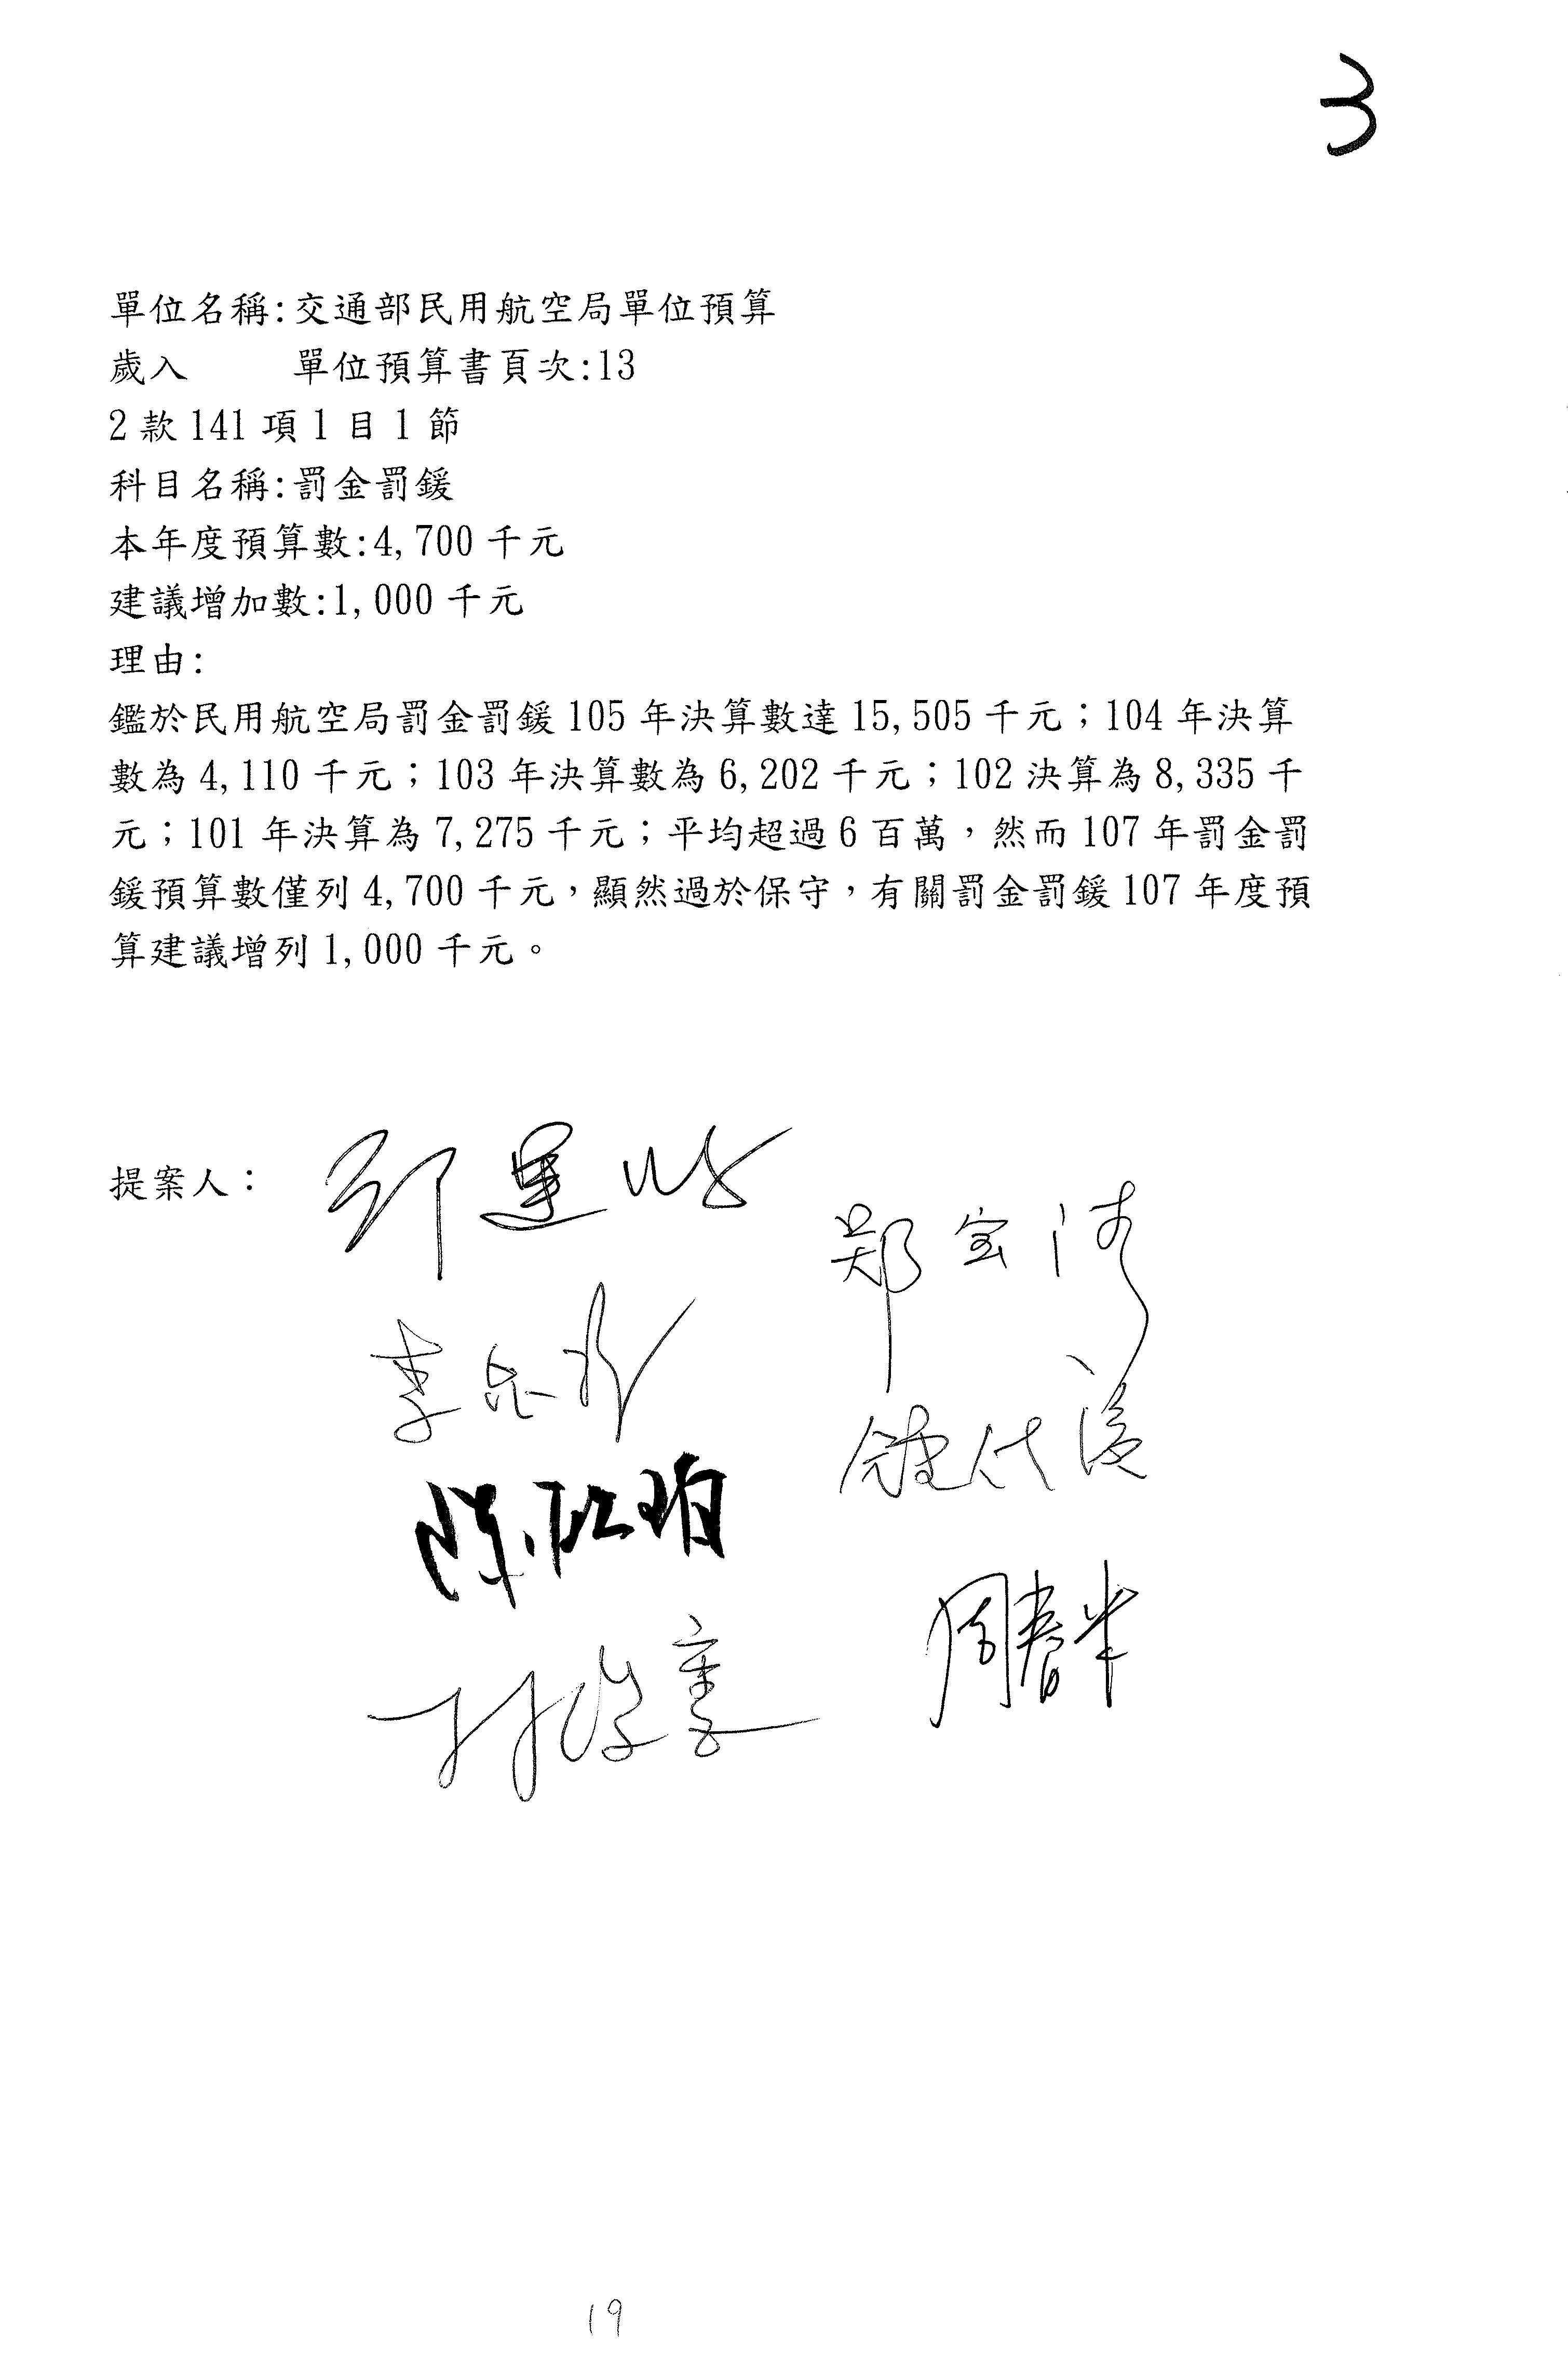 3
單位名稱:交通部民用航空局單位預算
歲入 單位預算書頁次:13
2 款 141 項 1 目 1 節
科目名稱:罰金罰鍰
本年度預算數:4,700 千元
建議增加數:1,000 千元
理由:
鑑於民用航空局罰金罰鍰 105 年決算數達 15,505 千元；104 年決算
數為 4,110 千元；103 年決算數為 6,202 千元；102 決算為 8,335 千
元；101 年決算為 7,275 千元；平均超過 6 百萬，然而 107 年罰金罰
鍰預算數僅列 4,700 千元，顯然過於保守，有關罰金罰鍰 107 年度預
算建議增列 1,000 千元。
提案人：
鄭宝清
李
陳
林俊憲
周春米
19